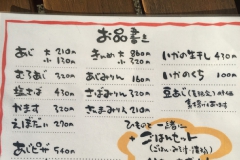 お品書き
あじ 大 210円
小 130円
むろあじ 320円
塩さば 430円
かます 320円
えぼだい 270円
あじピザ 540円
きんめ 大 860円
小 320円
あじみりん 160円
さばみりん 320円
さんまみりん 210円
いかの生干し 430円
いかのくち 100円
豆あじ
ひものと一緒に
ごはんセット